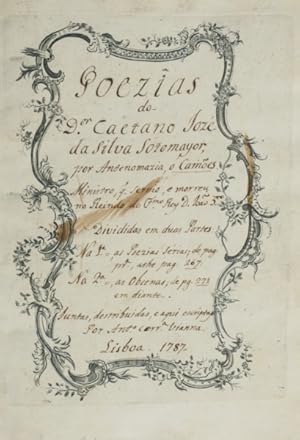 Poezîas
do
D.or Caetano Joze
da Silva Sotomayor,
por Antenomazia, o Camões
Ministro, q̃ servio, e morreu
no Reinado do Rey D. João 5.º
Divididas em duas Partes
Na 1.ª, as Poezias serias; de pag.
pr.ª athe pag. 267.
Na 2.ª, as Obcenas, de pg. 273
em diante.
Juntas, destribuidas, e aqui escriptas
Por Ant.º Corr.ª Vianna.
Lisboa. 1787.